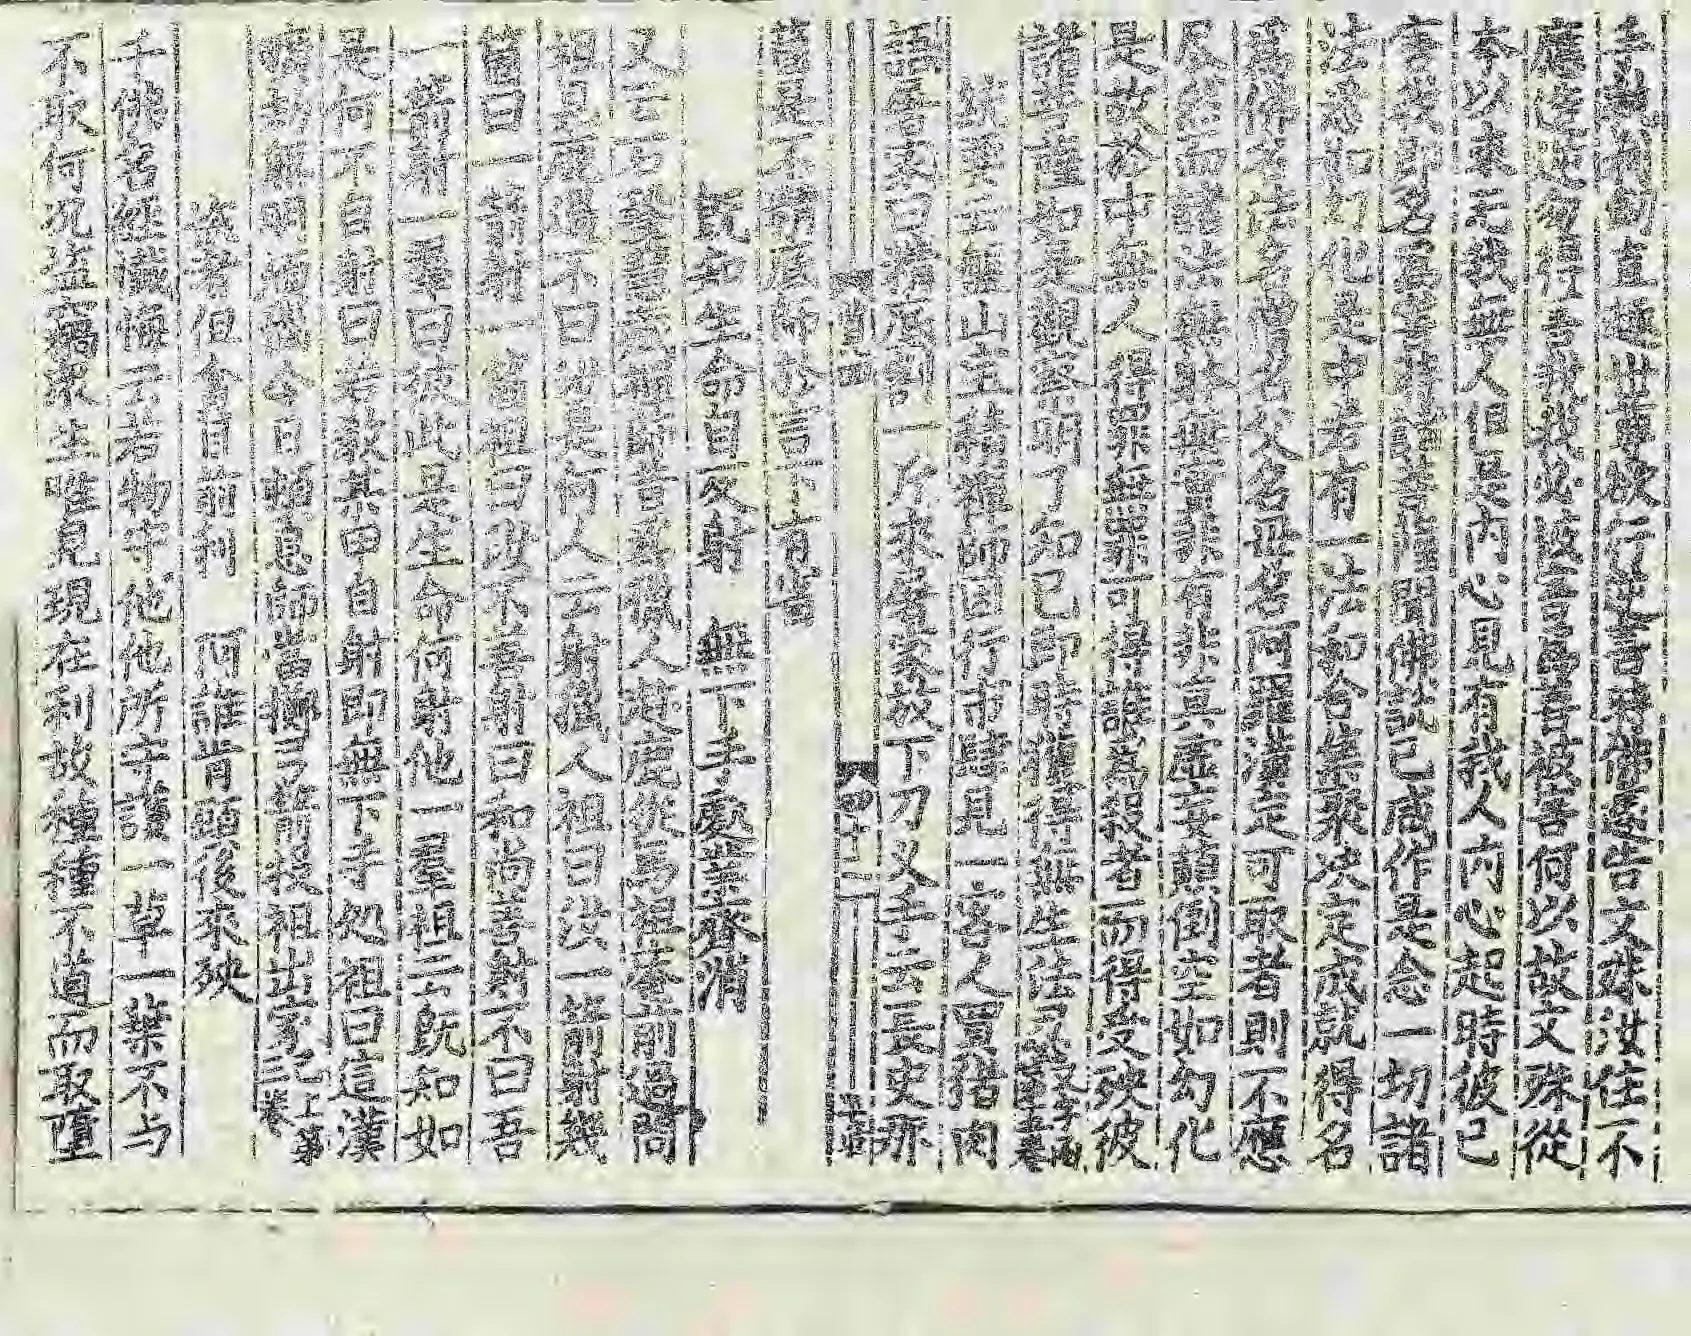 手執利劍直趣世尊欲行逆害時佛遂告文殊汝住不
應造逆勿得害我我必被害為善被害何以故文殊從
本以來无我無人但是內心見有我人內心起時彼已
害我即名為害時諸菩薩聞佛說已咸作是念一切諸
法悉如幻化是中若有一法和合集聚決定成就得名
為佛名法名僧名父名母名阿羅漢定可取者則不應
尽然而諸法無躰無實非有非真虛妄顛倒空如幻化
是故於中無人得罪無罪可得誰為殺者而得受殃彼
諸菩薩如是觀察明了知已即時獲得無生法忍
盤山宝積禪師因行市肆見一客人買猪肉
語屠家曰精底割一斤來屠家放下刀叉手云長史那
箇是不精底師於言下有省
四十二
既知生命自反射　無下手處業齊消
又云馬祖因石鞏慧藏禪師昔為獵人趂鹿從馬祖菴前過問
祖見鹿過不曰汝是何人云射獵人祖曰汝一箭射幾
箇曰一箭射一箇祖曰汝不善射曰和尚善射不曰吾
一箭射一羣曰彼此是生命何射他一羣祖云旣知如
是何不自射曰若敎某甲自射即無下手処祖曰這漢
曠劫無明煩惱今日頓息師當擲弓箭投祖出家
盜者但貪目前利　阿誰肯顧後來殃
千佛名經懺悔云若物守他他所守護一草一葉不与
不取何況盜竊衆生唯見現在利故種種不道而取墮